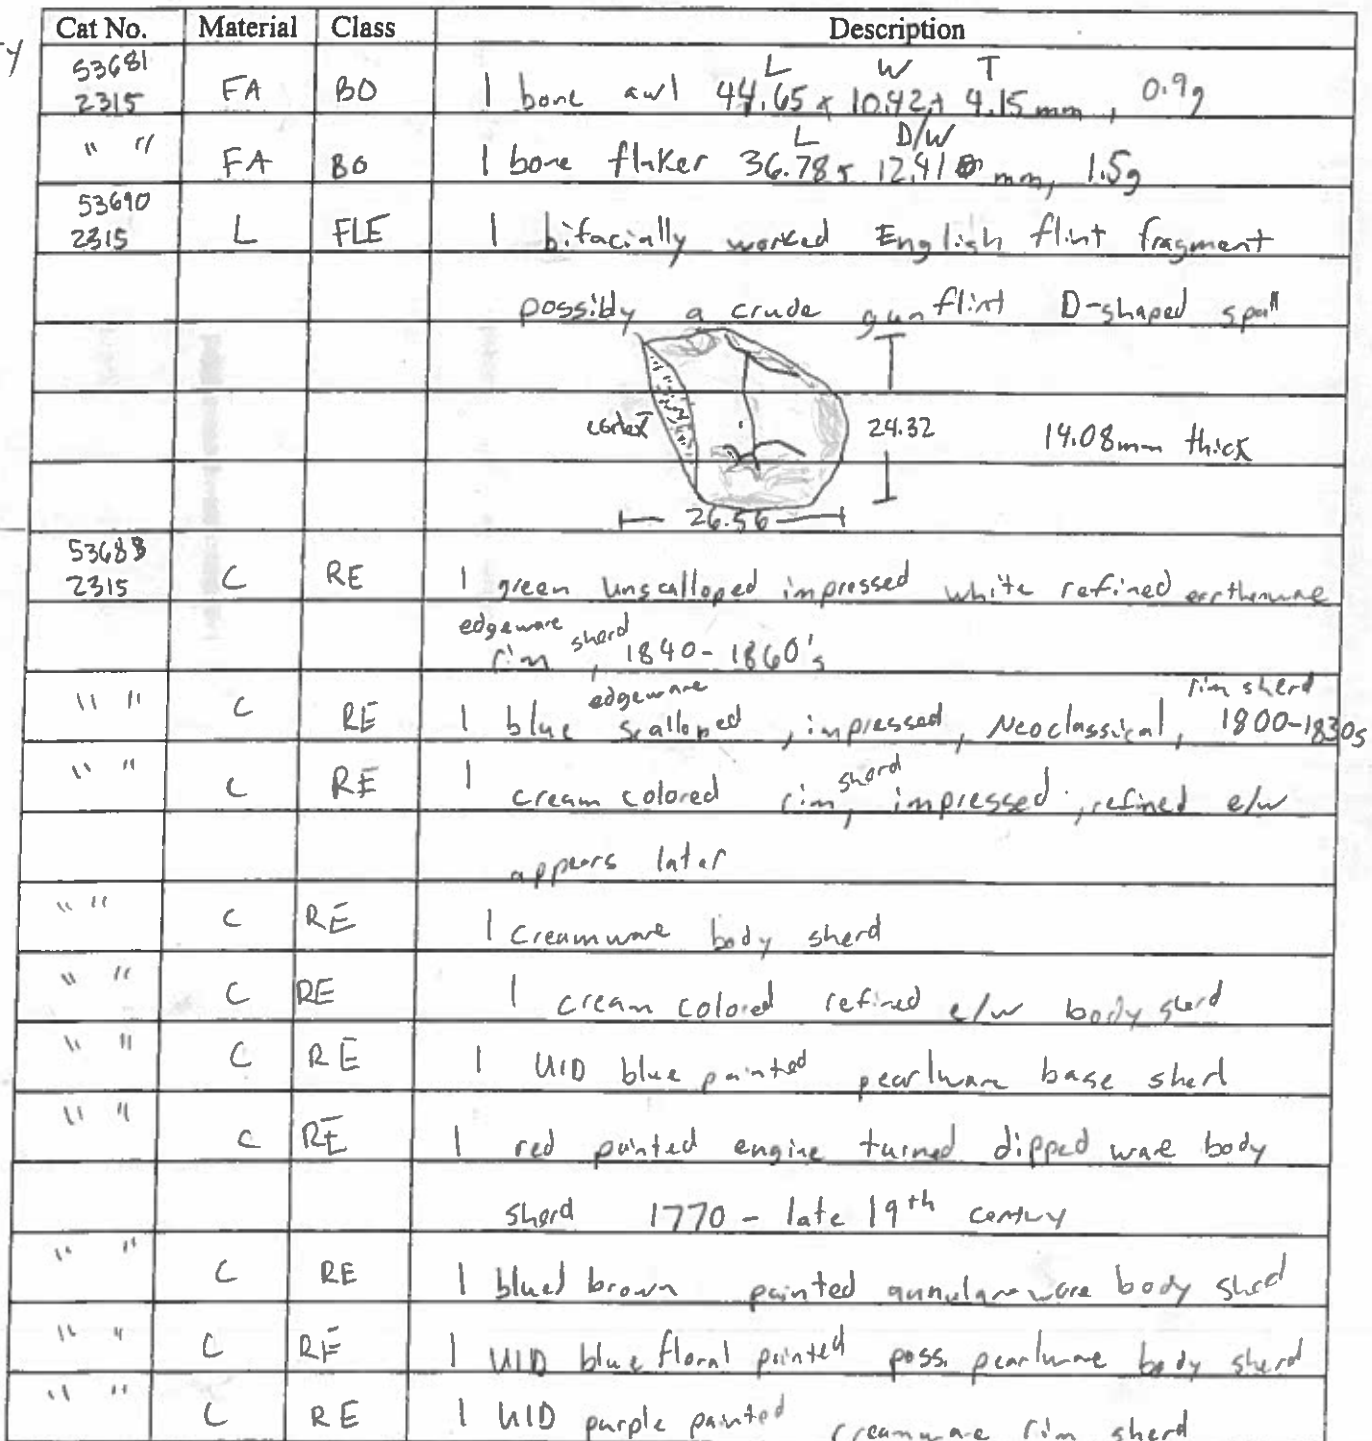 Cat No. Material Class Description
53681
2315 FA BO 1 bone awl 44.65 x 10.42 x 4.15 mm, 0.9g
L W T
" " FA BO 1 bone flaker 36.78 x 12.41 mm, 1.5g
L D/W
53690
2315 L FLE 1 bifacially worked English flint fragment
possibly a crude gunflint D-shaped spall
cortex 24.32 14.08mm thick
26.56
53688
2315 C RE 1 green unscalloped impressed white refined earthenware
edgeware rim sherd, 1840-1860's
" " C RE 1 blue edgeware scalloped, impressed, Neoclassical, rim sherd 1800-1830s
" " C RE 1 cream colored rim sherd, impressed, refined e/w
appears later
" " C RE 1 Creamware body sherd
" " C RE 1 cream colored refined e/w body sherd
" " C RE 1 UID blue painted pearlware base sherd
" " C RE 1 red painted engine turned dipped ware body
sherd 1770 - late 19th century
" " C RE 1 blue brown painted annularware body sherd
" " C RE 1 UID blue floral painted poss. pearlware body sherd
" " C RE 1 UID purple painted creamware rim sherd